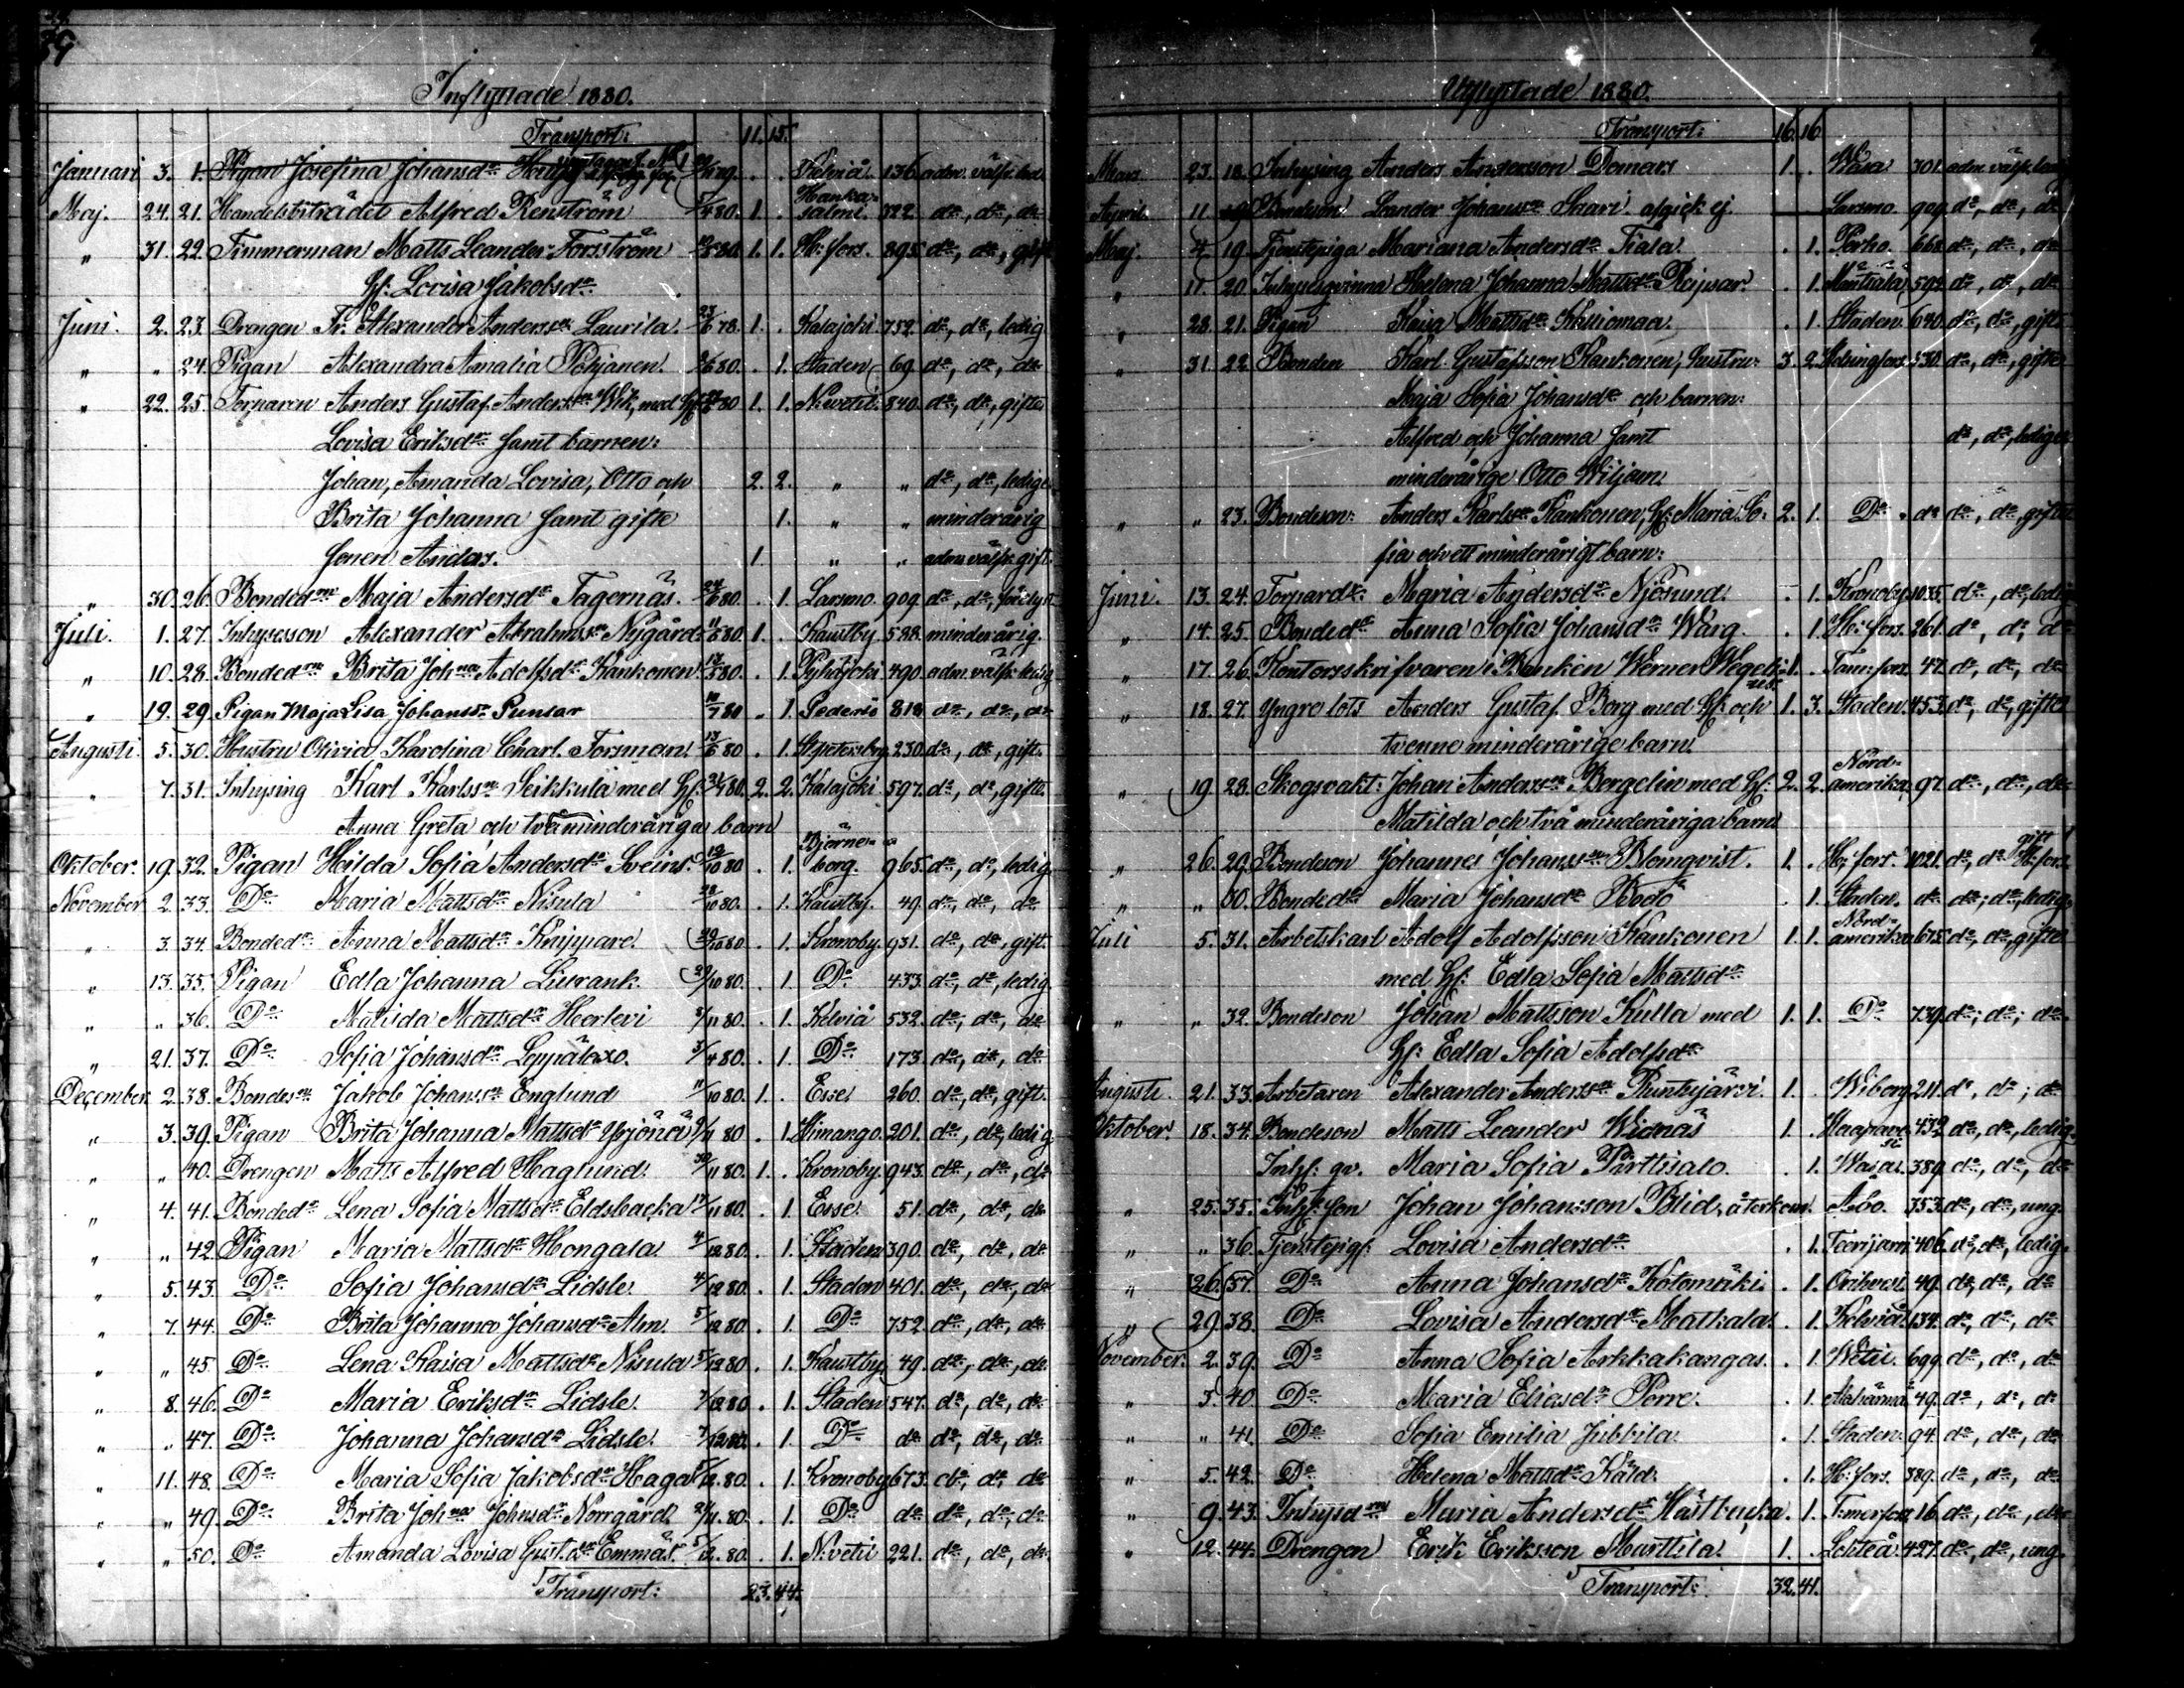 39
Inflyttade 1880.
Transport: 11. 15.
Januari 3. 1. Pigan Josefina Johansdr Kelviå 136 adm. välfr. led.
Maj. 24. 21. Handelsbiträdet Alfred Renström 5/4 80. 1. Hankasalmi. 322 do, do, do
" 31. 22. Timmerman Matts Leander Forsström 80. 1. 1. H:fors. 895. do, do, gift
Hf. Lovisa Jakobsdr
Juni. 2. 23. Drengen Fr. Alexander Anderss. Laurila. 23/6 78. 1. . Kalajoki 752 do, do, ledig
" " 24. Pigan Alexandra Amalia Pohjanen. 2/6 80. . 1. Staden 69. do, do, do
" 22. 25. Torparen Anders Gustaf Anderss. Wik, med Hf. 80 1. 1. N:vetil. 840. do, do, gifte
Lovisa Eriksdr samt barnen:
Johan, Amanda Lovisa, Otto och 2. 2. " " do, do, ledige
Brita Johanna samt gifte 1. " " minderårig
sonen Anders. 1. " " adm. välfr. gift.
" 30. 26. Bondedr Maja Andersdr Fagernäs. 24/6 80. . 1. Larsmo. 909. do, do,
Juli. 1. 27. Inhysesson Alexander Abrahamss. Nygård. 11/5 80. 1. . Kaustby. 588. minderårig.
" 10. 28. Bondedr Brita Johna Adolfsdr Kankonen. 80. . 1. Pyhäjoki 490. adm. välfr. ledig
" 19. 29. Pigan Maja Lisa Johansdr Punsar 10/7 80 . 1. Pedersö 818 do, do, do
Augusti. 5. 30. Hustru Olivia Karolina Charl. Forsman. 13/6 80. . 1. St.petersbrg. 230. do, do, gift.
" 7. 31. Inhysing Karl Karlss. Seikkula med Hf. 31/7 80. 2. 2. Kalajoki 597. do, do, gifte.
Anna Greta och två minderåriga barn
Oktober. 19. 32. Pigan Hilda Sofia Andersdr Sveins. 12/10 80 . 1. Björneborg. 965. do, do, ledig.
November 2. 33. Do Maria Mattsdr Nisula 28/10 80. . 1. Kaustby. 49 do, do, do
" 3. 34. Bondedr Anna Mattsdr Knippare. 29/10 80. . 1. Kronoby. 931. do, do, gift.
" 13. 35. Pigan Edla Johanna Lierank. 29/10 80. . 1. Do 433. do, do, ledig.
" " 36. Do Matilda Mattsdr Herlevi 5/11 80. . 1. Kelviå 532. do, do, do
" 21. 37. Do Sofia Johansdr Leppälaxo. 3/4 80. . 1. Do 173. do, do, do
December. 2. 38. Bondes. Jakob Johanss. Englund 11/10 80. 1. Esse 260. do, do, gift.
" 3. 39. Pigan Brita Johanna Mattsdr Yrjönä 9/11 80 . 1. Himango. 201. do, do, ledig.
" " 40. Drengen Matts Alfred Haglund. 30/11 80. 1. . Kronoby. 943. do, do, do
" 4. 41. Bondedr Lena Sofia Mattsdr Eldsbacka 17/11 80. . 1. Esse 51. do, do, do
" " 42. Pigan Maria Mattsdr Hongala 4/12 80. . 1. Staden 390. do, do, do
" 5. 43. Do Sofia Johansdr Lidsle. 4/12 80. . 1. Staden 401. do, do, do
" 7. 44. Do Brita Johanna Johansdr Alm. 5/12 80. . 1. Do 752. do, do, do
" " 45 Do Lena Kaisa Mattsdr Nisula 5/12 80. . 1. Kaustby 49. do, do, do
" 8. 46. Do Maria Eriksdr Lidsle. 7/12 80 . 1. Staden 547. do, do, do
" " 47. Do Johanna Johansdr Lidsle. 7/12 80. . 1. Do do do, do, do
" 11. 48. Do Maria Sofia Jakobsdr Haga 5/12. 80. . 1. Kronoby 673. do, do, do
" " 49. Do Brita Johna Johansdr Norrgård 21/11. 80. . 1. Do do do, do, do
" " 50. Do Amanda Lovisa Gust.dr Emmäs. 5/12. 80. . 1. N:vetil 221. do, do, do.
Transport: 23. 44.
Utflyttade 1880.
Transport: 16. 16
Mars 23. 18. Inhysing Anders Andersson Domars 1. . Wasa 301. adm. välfr. ledig
April. 11 19. Bondeson Leander Johanss. Saari. afgick ej. Larsmo. 909. do, do, do
Maj. 4. 19. Tjenstepiga Mariana Andersdr Tiala. . 1. Perho. 668. do, do, do
" 11 20. Inhysesqvinna Helena Johanna Mattsdr Reipsar. . 1. Mäntsälä 592. do, do, do
" 28. 21. Pigan Kaisa Mattsdr Kassiomaa. . 1. Staden. 640. do, do, gift
" 31. 22. Bonden Karl Gustafsson Kankonen, hustru 3. 2. Helsingfors 530. do, do, gifte
Maja Sofia Johansdr och barnen:
Alfred och Johanna samt do, do, lediga
minderårige Otto Wiljam.
" " 23. Bondeson: Anders Karlss. Kankonen, Hf. Maria So- 2. 1. Do. do do, do, gifte
fia och ett minderårigt barn:
Juni. 13. 24. Torpardr. Maria Andersdr Njösund. . 1. Kronoby. 1035. do, do, ledig
" 14. 25. Bondedr Anna Sofia Johansdr Warg. . 1. H:fors. 261. do, do, do
" 17. 26. Kontorsskrifvaren i Banken Werner Wegelius 1. . Tam:fors. 47. do, do, do
" 18. 27. Yngre lots Anders Gustaf Borg med Hf. och 1. 3. Staden. 453. do, do, gifte
tvenne minderårige barn.
" 19. 28. Skogsvakt: Johan Anderss. Bergelin med Hf. 2. 2. Nordamerika. 97. do, do, do
Matilda och två minderåriga barn
" 26. 29. Bondeson Johannes Johanss. Blomqvist. 1. . H:fors. 1021. do, do gift H:fors
" " 30. Bondedr Maria Johansdr Bodö . 1. Staden. do do; do, ledig.
Juli 5. 31. Arbetskarl Adolf Adolfsson Kankonen 1. 1. Nordamerika 675. do, do, gifte
med Hf. Edla Sofia Mattsdr
" " 32. Bondeson Johan Mattsson Kulla med 1. 1. Do 739. do; do; do.
Hf: Edla Sofia Adolfsdr
Augusti. 21. 33. Arbetaren Alexander Anderss. Runtujärvi. 1. Wiborg 211. do, do; do
Oktober. 18. 34. Bondeson Matts Leander Widnäs 1. Haapavesi 432 do, do, ledig.
Inhys: qv. Maria Sofia Parttisalo. . 1. Wasa. 389. do, do, do
" 25. 35. Inhys: son Johan Johansson Blid, återkom. Åbo. 353. do, do, ung.
" " 36. Tjenstepig: Lovisa Andersdr . 1. Teerijärvi 406. do, do, ledig.
" 26. 37. Do Anna Johansdr Kotomäki. . 1. Orihvesi. 49. do, do, do
" 29. 38. Do Lovisa Andersdr Matkala. . 1. Kelviå. 134. do, do, do
November. 2. 39. Do Anna Sofia Arkkakangas. . 1. Wetil. 699. do, do, do
" 3. 40 Do Maria Eliasdr Porre. . 1. Alahärmä. 49. do, do, do
" " 41. Do Sofia Emilia Jubbila. . 1. Staden. 94. do, do, do
" 5. 42. Do Helena Mattsdr Kåld. . 1. H:fors. 389. do, do, do
" 9. 43. Inhysdr Maria Andersdr Hästbacka . 1. T:merfors. 16. do, do, do
" 12. 44. Drengen Erik Eriksson Marttila. 1. . Lohteå. 427. do, do, ung.
Transport: 32. 41.